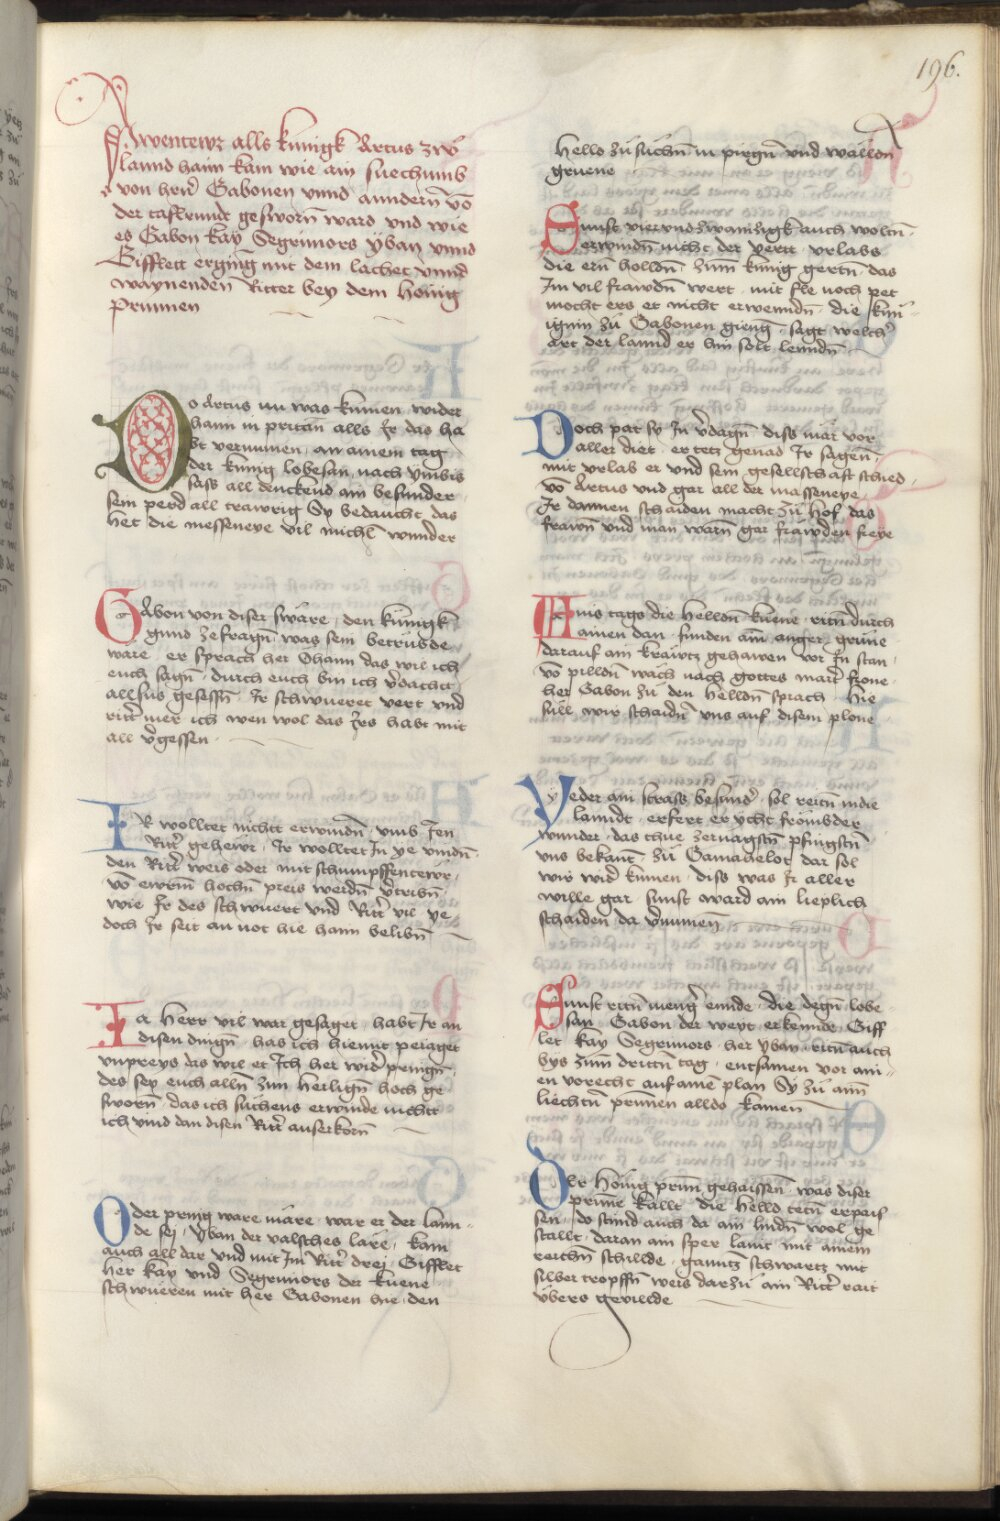 196.
Awentewr alls kunigk Artus zw
lannd haim kam wie ain suechumb
von herñ Gabonen vnnd anndern võ
der tafelrundt gesworn ward vnd wie
es Gabon kay Segrimors yban vnnd
Gifflett erging mit dem lachet vnnd
waynenden Ritter bey dem honig
prunnen
Do Artus nu was kumen wider
haim in pritan alls Jr das ha
bt vernumen an ainem tag
der kunig lobesan nach ymbis
sass all denckend ain besunder
sein perd all trawrig Sy bedaucht das
het die messeneye vil michl wunder
Gabon von diser sware den kunigk
gund ze fragn was sein betrubde
ware er sprach her Ohaim das wil ich
euch sagn durch euch bin ich vdacht
allsus gesessn Jr schwueret vert vnd
ritt mer ich wen wol das Jrs habt mit
all vgessen
IR wolltet nichtt erwindn vmb Jen
Ritt gehewr Jr wolltet In ye vindn
den Ritt weis oder mit schumpffentewr
võ ewrm hochn preis werdn vtribn
wie Jr des schwuert vnd Ritt vil ye
doch Jr seit an not hie haim belibn
Ja herr vil war gesaget habt Jr an
disen dingn has ich hiemit peiaget
vnpreys das wil et Ich her wid pringn
des sey euch alln zun heilign hoch ge
sworn das ich suchens erwinde nichtt
ich vind dan disen Ritt auserkorn
Oder pring ware mare war er der lann
de sej Yban der valsches lare kam
auch all dar vnd mit Jm Ritt drej Gifflet
her kay vnd Segrimors der kuene
schwueren mit her Gabonen hie den
Helld zu suchn in pirgn vnd walldn
gruene
Sunst viervndzwainzigk auch woltn
erwindn nicht der vertt vrlabs
die ern holldn zum kunig gertn das
Jm vil frawdn wert mit fle noch pet
mocht ers et nicht erwenndn die kun
igin zu Gabonen gieng sagt welch
art der lannd er hin solt lenndn
Doch pat sy In vdagn diss mar vor
aller diet er tetz genad Jr sagen
mit vrlab er vnd sein gesellschaft schied
võ Artus vnd gar all der masseneye
Jr dannen schaiden macht zu hof das
frawn vnd man warn gar frawden freye
Ains tags die helldn kuene ritn durch
ainen dan funden am enger gruene
darauf ain krawtz gehawen vor In stan
võ pilldn wach nach gottes mart frone
her Gabon zu den helldn sprach hie
sull wir schaidn vns auf disem plone
Yeder ain strass besund sol reitn in die
lanndt erfert er ycht fromder
wunder das thue zernagstn pfingstn
vns bekant zu Gamahelot dar sol
wir wid kumen diss was Jr aller
wille gar sunst ward ain lieplich
schaiden da vnumen
Sunst ritn meng ennde die degn lobe
san Gabon der wert erkennde Giff
let kay Segrimors her yban ritn auch
bys zum dritn tag entsamen vor ain
en vorecht auf ainẽ plan Sy zu aim
liechtn prunnen alldo kamen
Der honig prunn gehaissen was diser
prunne kallt die helld tetn erpais
sen do stund auch da ain lindn wol ge
stallt daran ain sper lanit mit ainem
reichn schillde ganntz schwartz mit
silber tropffn weis darzu ain Ritt rait
vbers gevillde